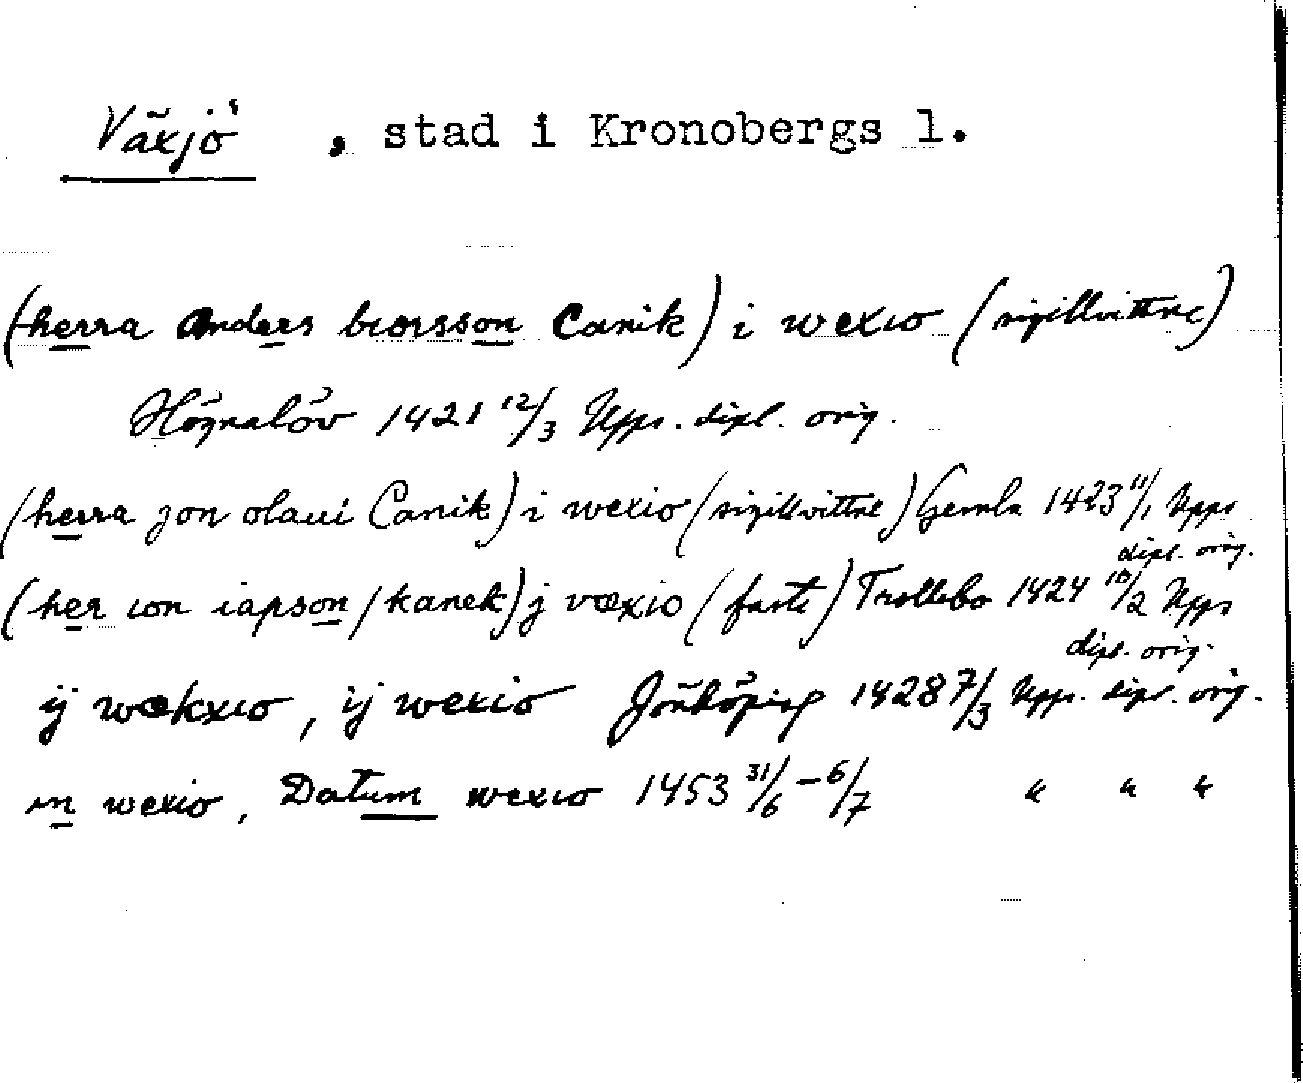 Växjö, stad i Kronobergs l.
(herra Anders biorsson Canik) i wexio (sigillvittne)
Högnalöv 1421 12/3 Upps. dipl. orig.
(herra jon olaui Canik) i wexio (sigillvittne) Gemla 1423 11/1 Upps
dipl. orig.
(her ion iapson / kanek) j væxio (faste) Trollebo 1424 10/2 Upps
dipl. orig.
ij wækxio, ij wexio Jönköping 1428 7/3 Upps. dipl. orig.
in wexio, Datum wexio 1453 31/6 - 6/7 " " "